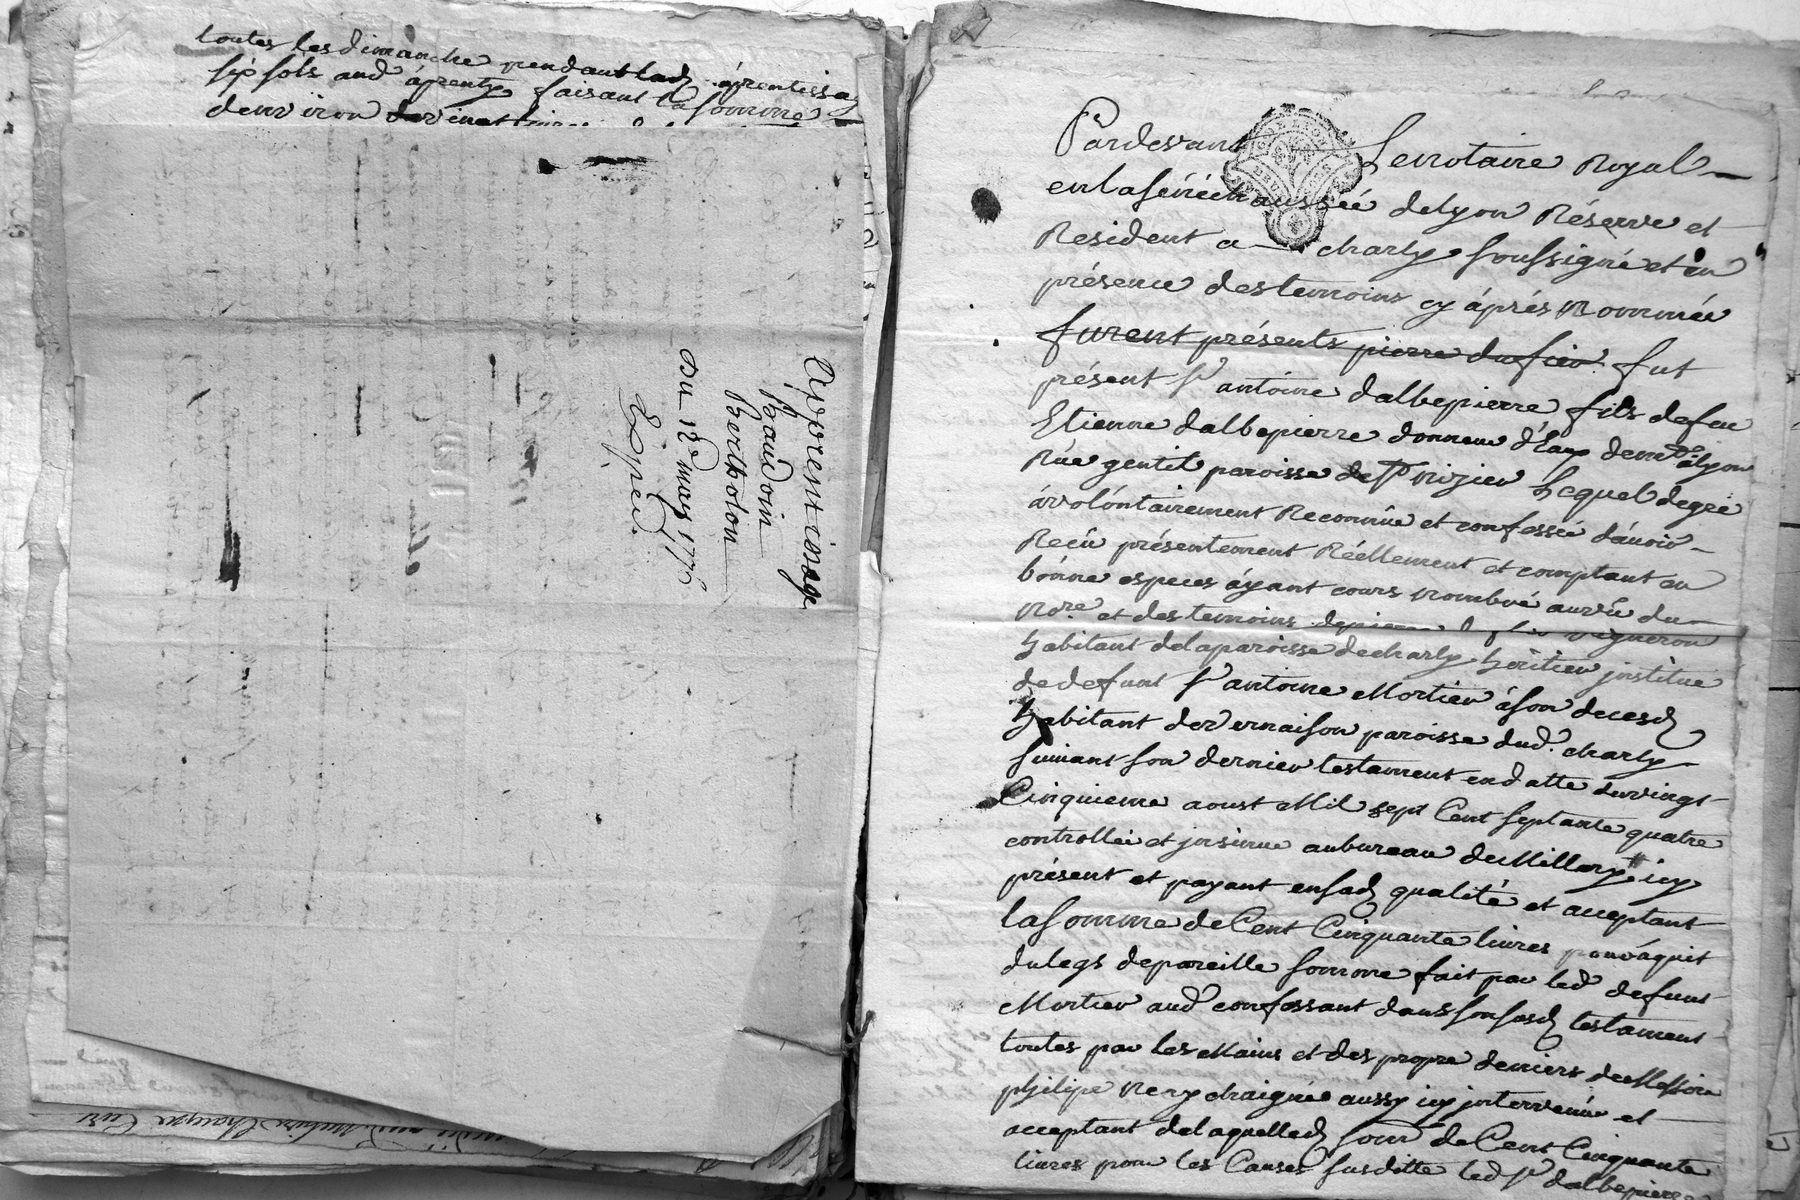 toutes les dimanche pendant lad. áprentissag
six sols aud áprenty faisant la somme
denviron
Apprentissage
Baudoin
Bertholon
Du 12e mars 1776
Expéd.
Pardevant Le notaire Royal
en la sénéchaussée de Lyon Réservé et
Resident a charly soussigné et en
présence des temoins cy áprés nommée
furent présents pierre dufieu. fut
présent Sr antoine dalbepierre fils de feu
Etienne dalbepierre donneur d'Eau demt. à lyon
Rüe gentil paroisse de St nizier Lequel de gré
á volóntairement Reconnüe et confessée dávoir
Reçû présentement Réellement et comptant en
bónne especes áyant cours nombré au vû du
Nore. et des temoins de pierre dufieu vigneron
habitant de la paroisse de charly héritier institué
de defunt Sr antoine Mortier á son deces
habitant de vernaison paroisse dud. charly
suivant son dernier testament en datte du vingt
Cinquieme aoust Mil sept Cent septante quatre
controllée et insinue au bureau de Millery icy
présent et payant en sad. qualité et acceptant
la somme de Cent Cinquante livres pour áquit
du legs de pareille somme fait par led. defunt
Mortier aud. confessant dans son susd. testament
toutes par les Mains et des propre deniers de Messire
philipe Nery chaignée aussy icy intervenüe et
acceptant de laquelled. somme de Cent Cinquante
livres pour les Causes susditte led Sr dalbepierre